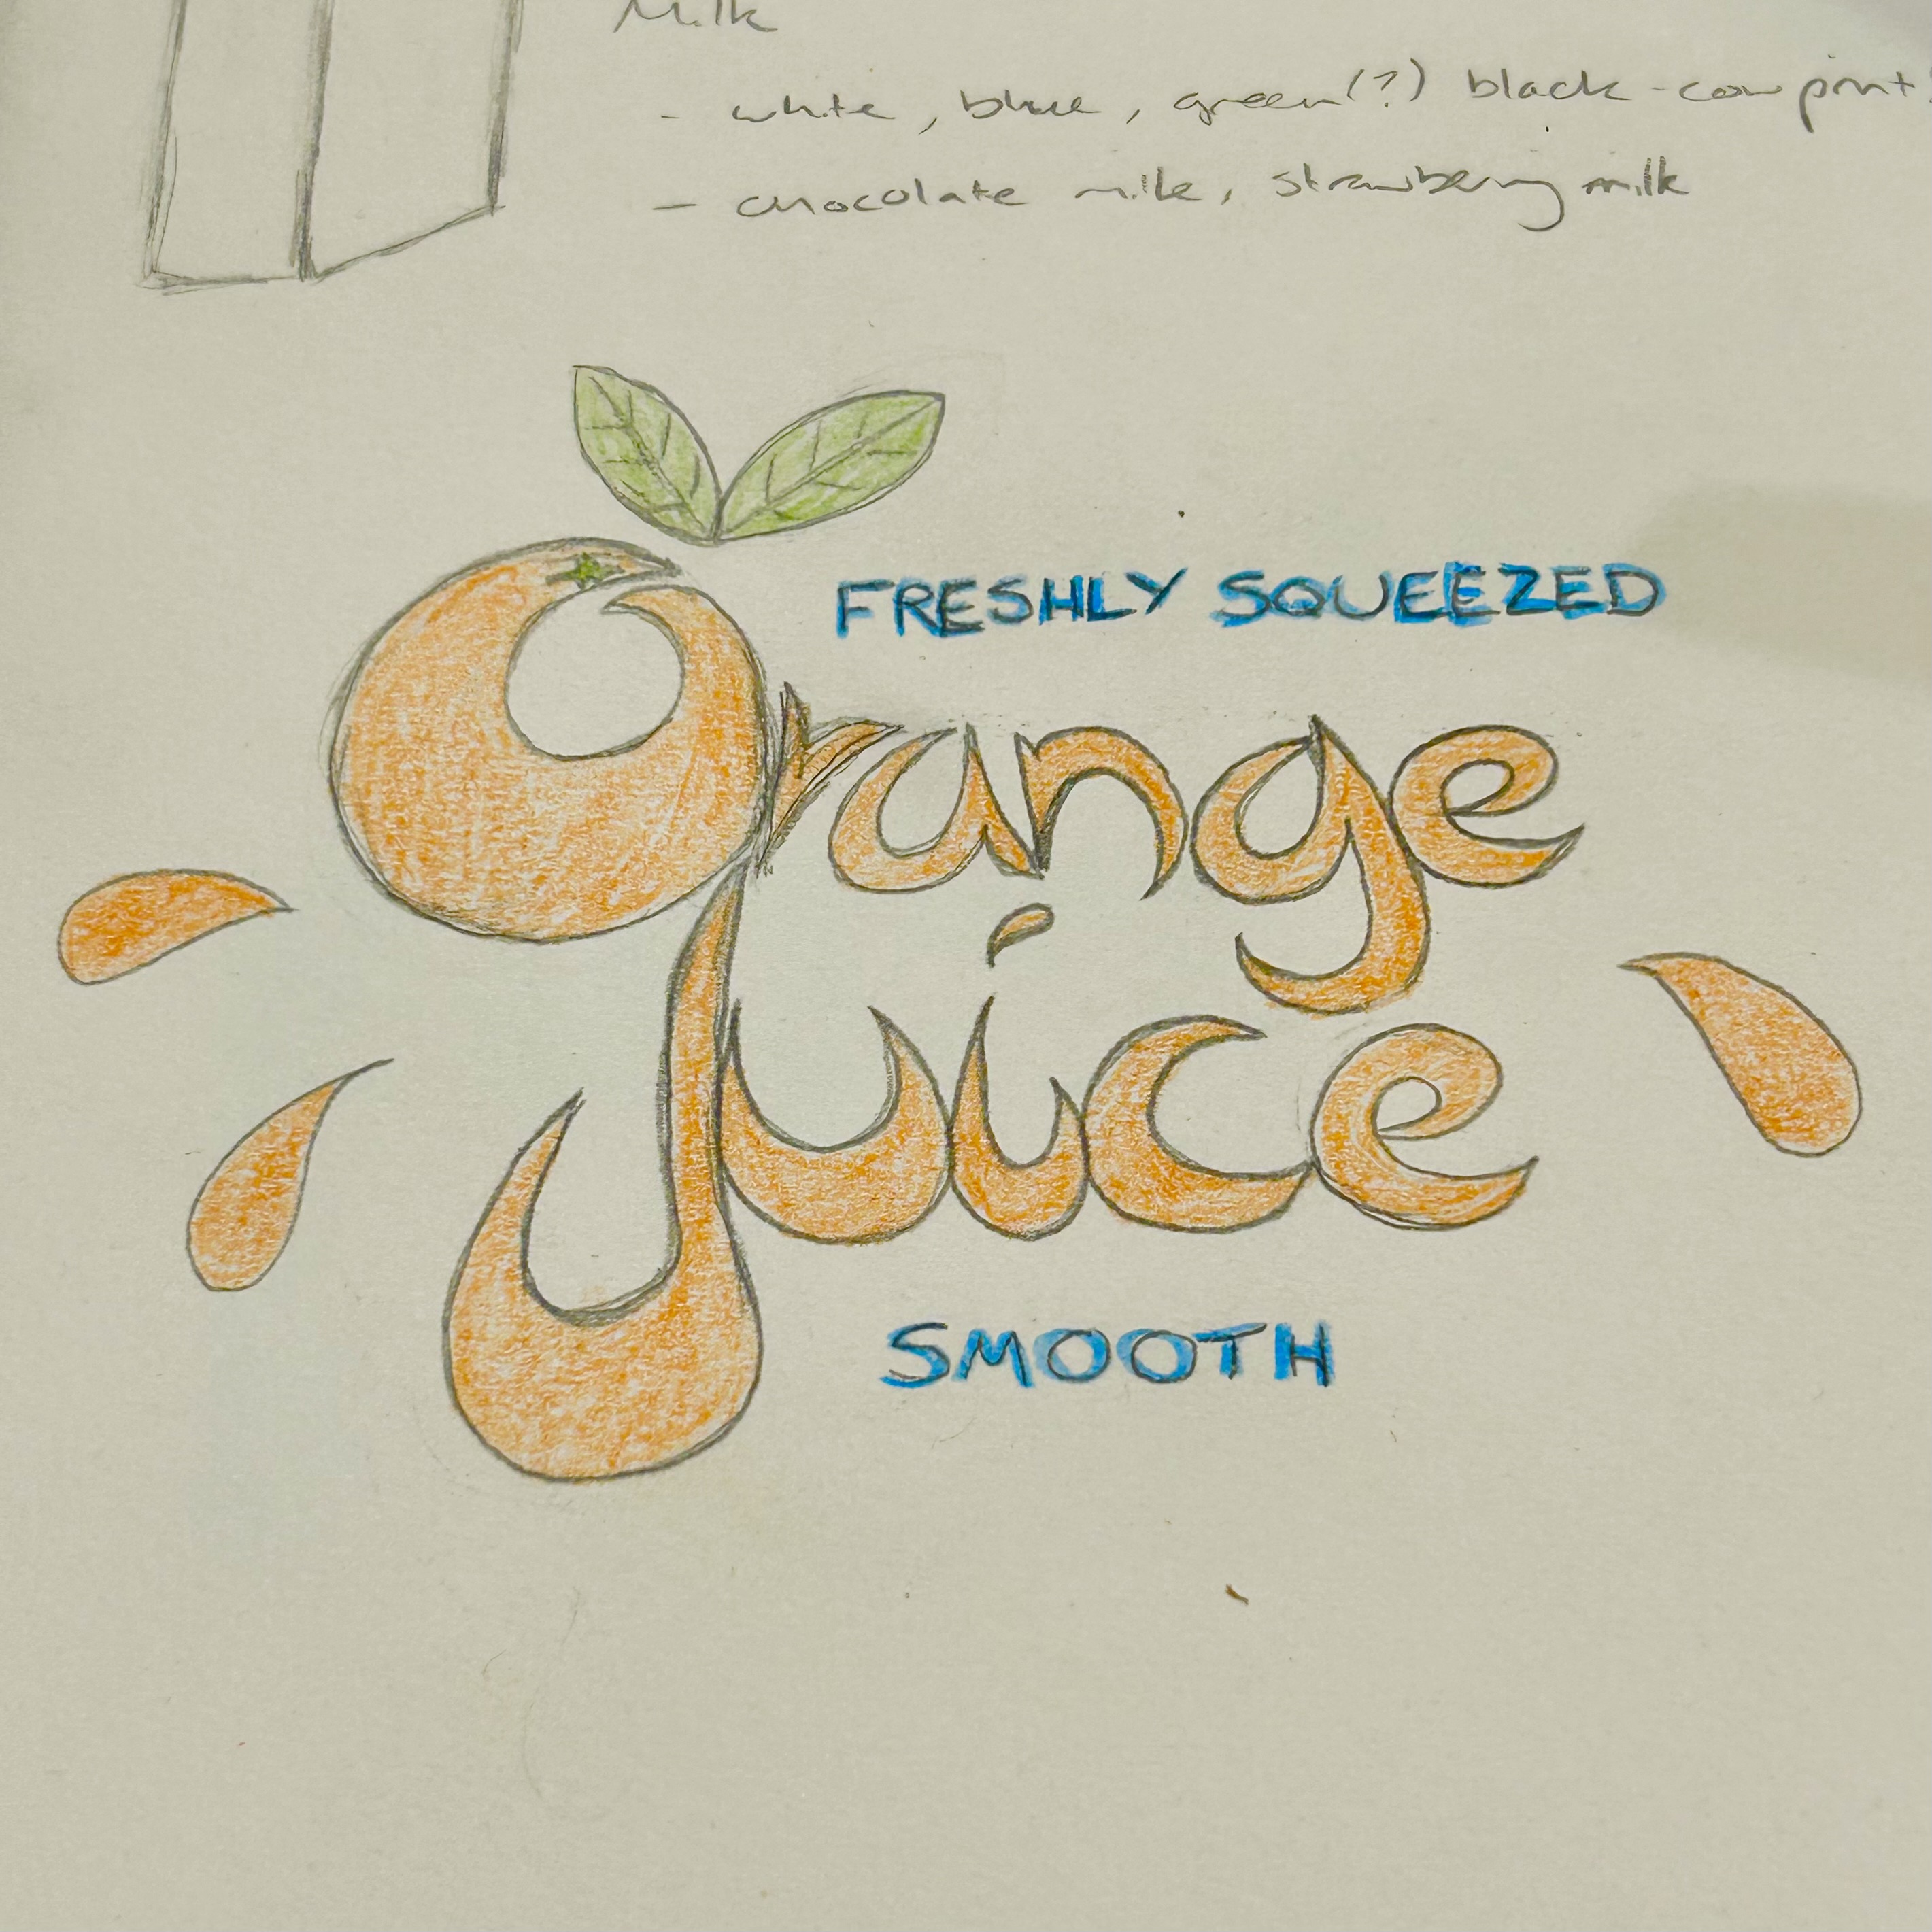 Milk
- white, blue, green(?) black-cow print
- chocolate milk, strawberry milk
FRESHLY SQUEEZED
Orange
Juice
SMOOTH